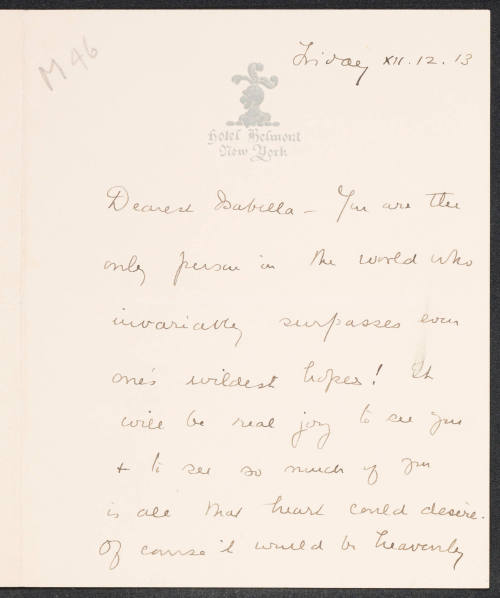 M 46
Friday XII. 12. 13
Hotel Belmont
New York
Dearest Isabella - You are the
only person in the world who
invariably surpasses even
one's wildest hopes! It
will be real joy to see you
+ to see so much of you
is all that heart could desire.
Of course it would be heavenly